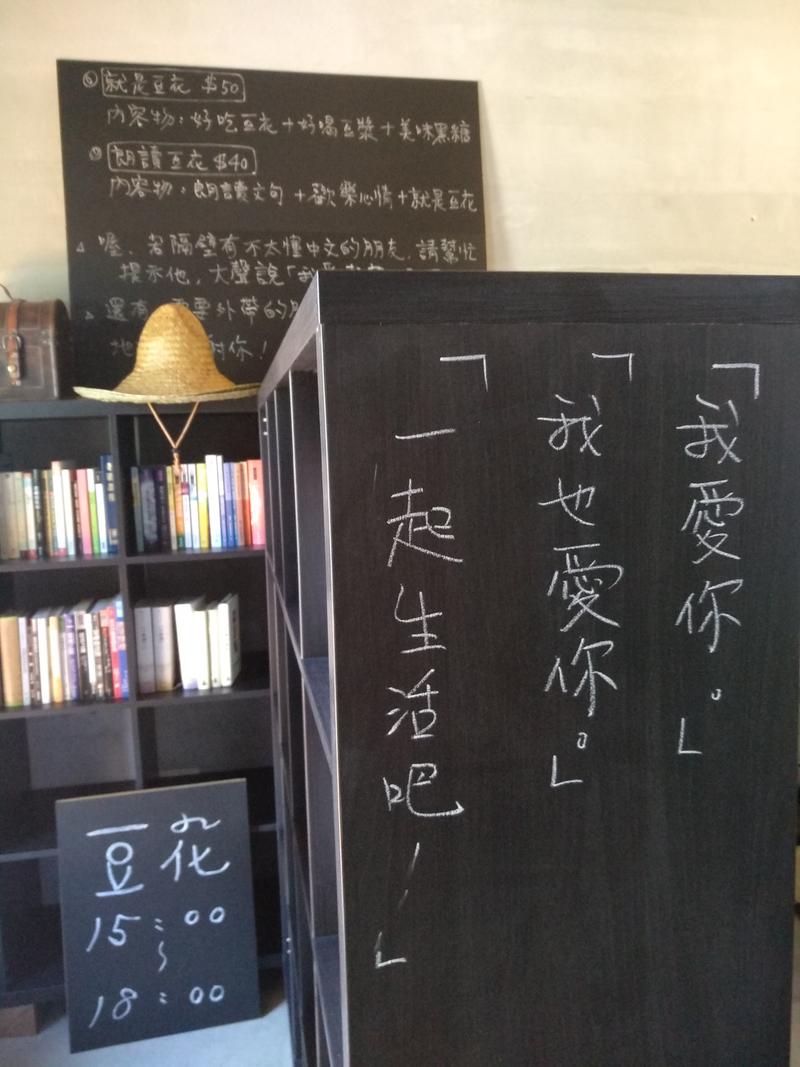 就是豆花 $50
內容物：好吃豆花＋好喝豆漿＋美味黑糖
朗讀豆花 $40
內容物：朗讀文句＋歡樂心情＋就是豆花
喔、若隔壁有不太懂中文的朋友，請幫忙
提示他，大聲說「我
還有 需要外帶的
地 對你！
「我愛你。」
「我也愛你。」
「一起生活吧！」
豆花
15：00
～
18：00